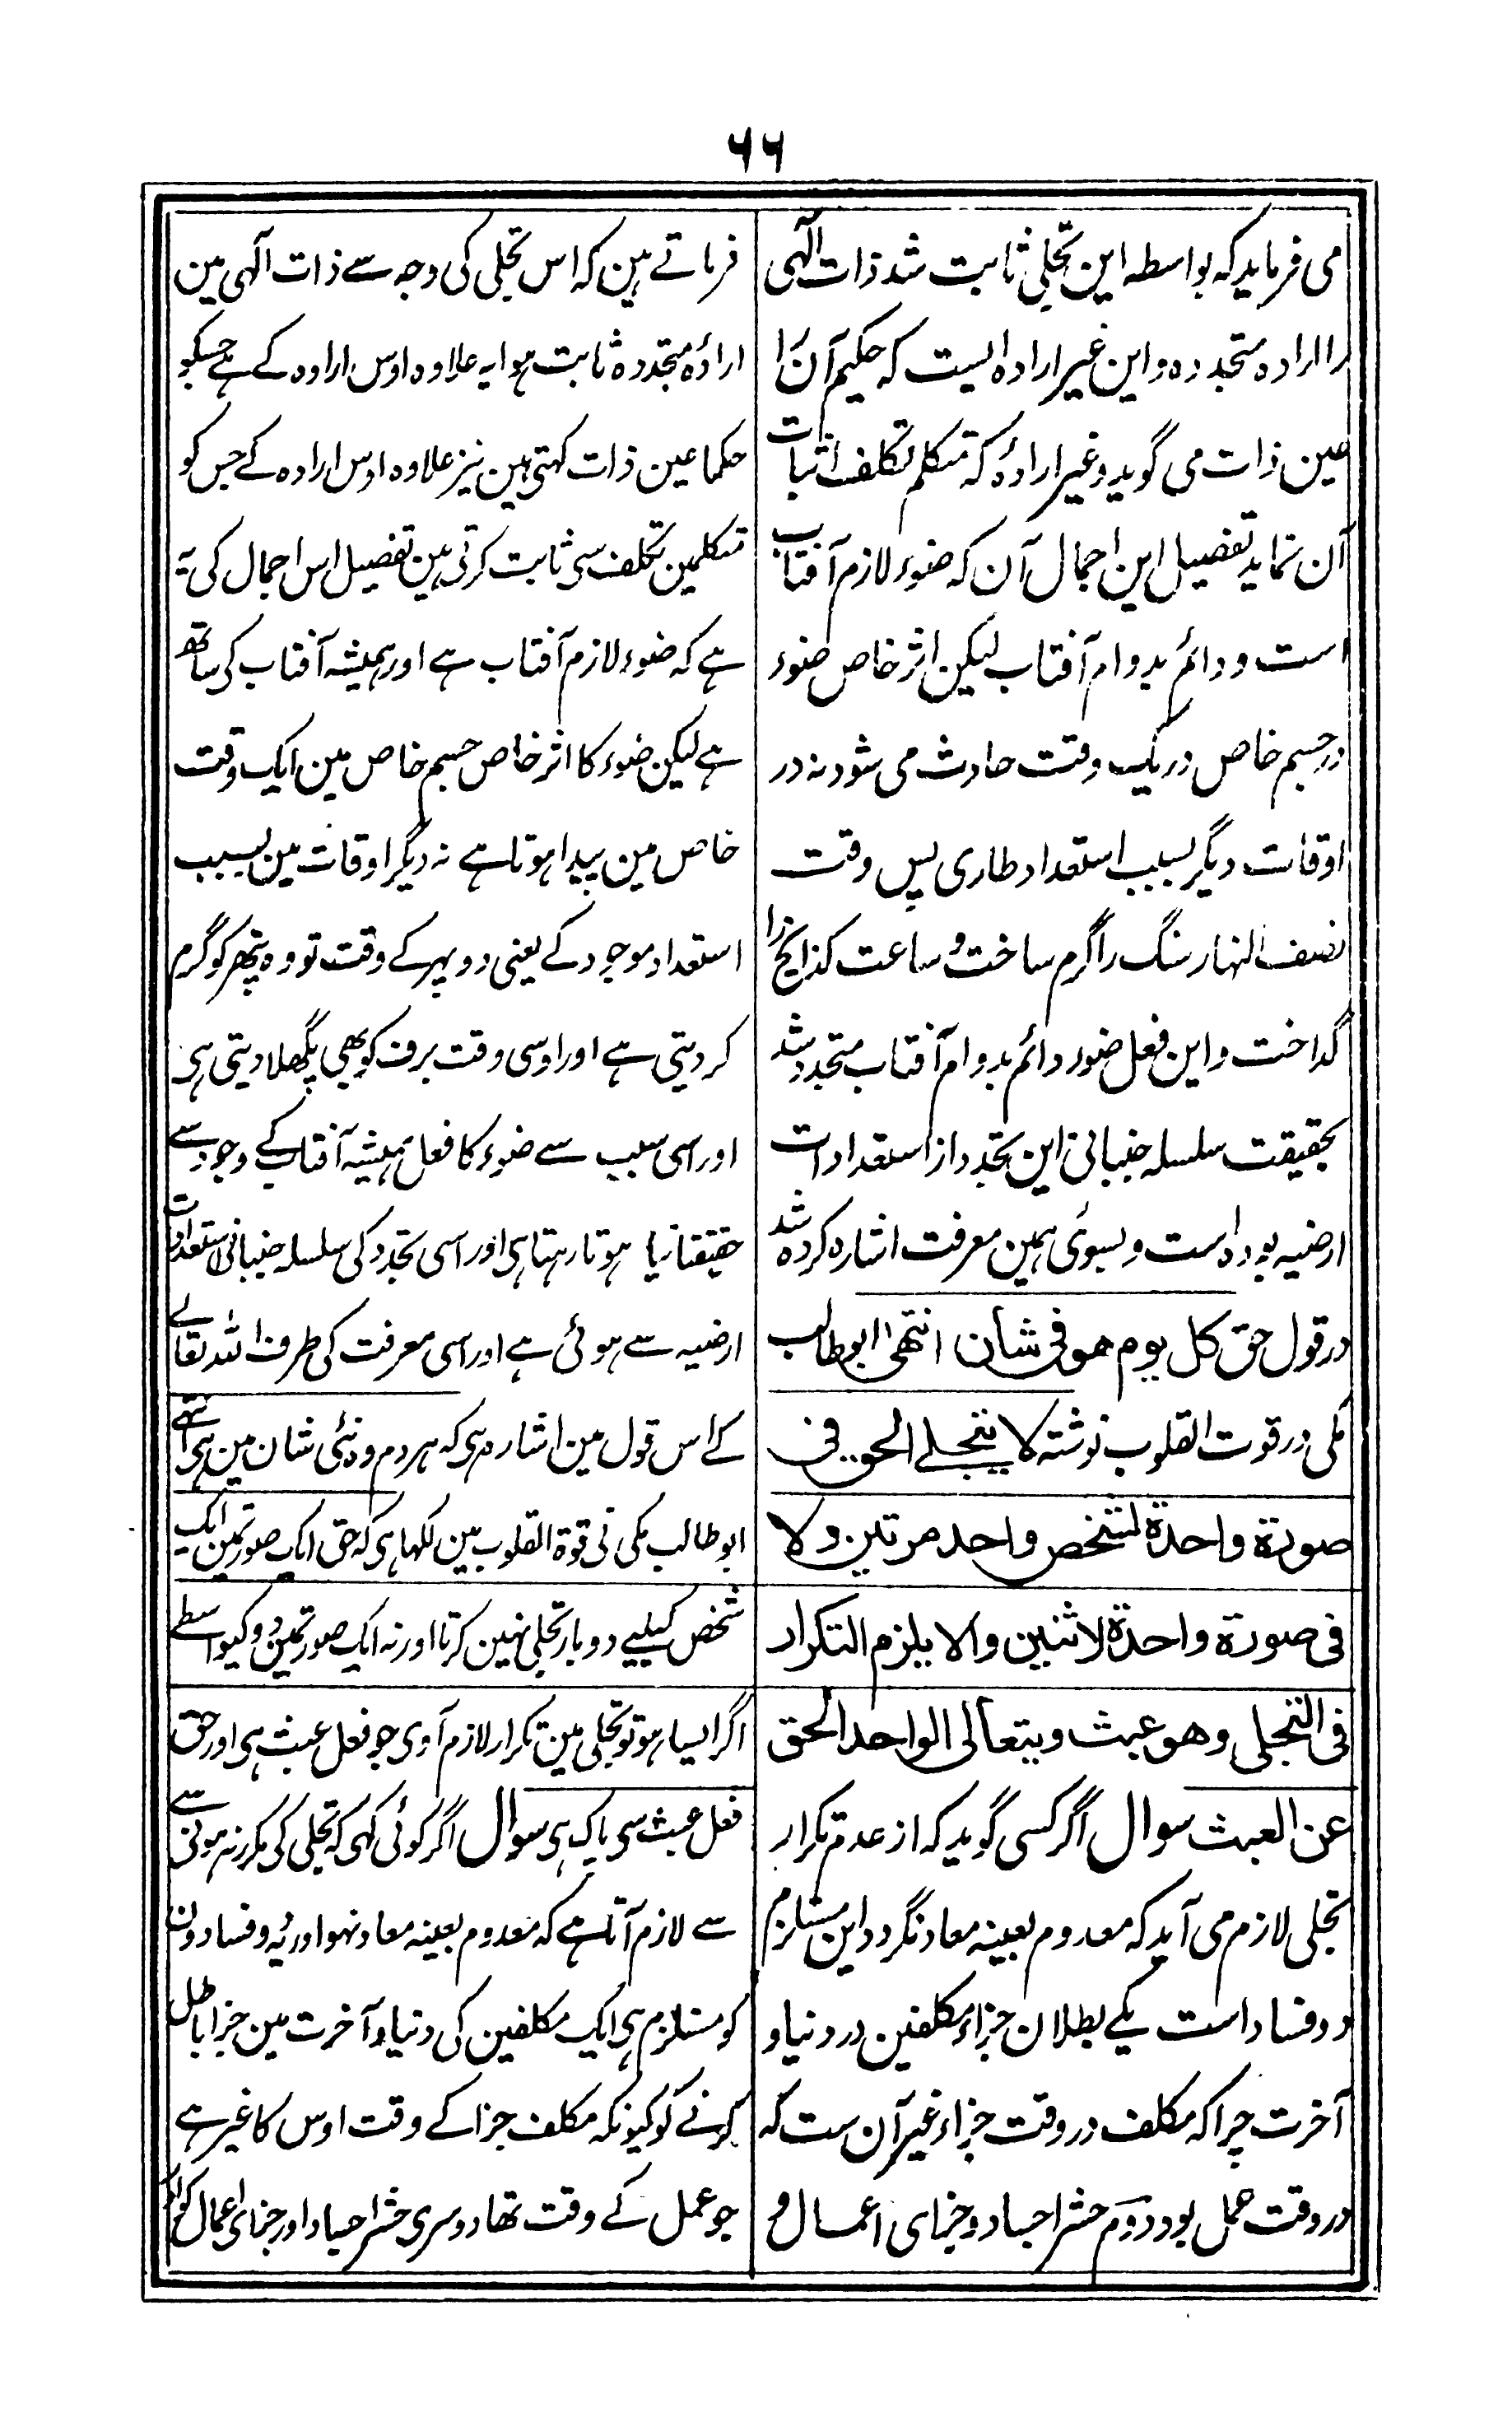 ٦٦
می فرماید که بواسطه این تجلی ثابت شد ذات الٰہی
را ارادہ متجددہ و این غیر ارادہ ایست که حکیم آن را
عین ذات می گوید و غیر ارادۂ که متکلم تکلف اثبات
آن نماید تفصیل این اجمال آن که ضوء لازم آفتاب
است و دائم بدوام آفتاب لیکن اثر خاص ضوء
در جسم خاص در یک وقت حادث می شود نه در
اوقات دیگر بسبب استعداد طاری پس وقت
نصف النهار سنگ را گرم ساخت و ساعت کذا یخ را
گداخت و این فعل ضوء دائم بدوام آفتاب متجدد شد
بحقیقت سلسله جنبانی این تجدد از استعدادات
ارضیه بوده است و بسوی ہمین معرفت اشاره کرده شد
در قول حق کل یوم هو فی شان انتهی ابو طالب
مکی در قوت القلوب نوشته لا یتجلے الحق فی
صورة واحدة لشخص واحد مرتین ولا
فی صورة واحدة لاثنین والا یلزم التکرار
فی التجلی وهو عبث ویتعالی الواحد الحق
عن العبث سوال اگر کسی گوید که از عدم تکرار
تجلی لازم می آید که معدوم بعینه معاد نگردد و این مستلزم
دو فساد است یکے بطلان جزاء مکلفین در دنیا و
آخرت چرا که مکلف در وقت جزاء غیر آن ست که
در وقت عمل بود دوم حشر اجساد و جزای اعمال و
فرماتے ہین کہ اس تجلی کی وجہ سے ذات الٰہی مین
ارادۂ متجددہ ثابت ہوا یہ علاوہ اوس ارادہ کے ہے جسکو
حکما عین ذات کہتی ہین نیز علاوہ اوس ارادہ کے جس کو
متکلمین تکلف سی ثابت کرتی ہین تفصیل اس اجمال کی یہ
ہے کہ ضوء لازم آفتاب ہے اور ہمیشہ آفتاب کی ساتھ
ہے لیکن ضوء کا اثر خاص جسم خاص مین ایک وقت
خاص مین پیدا ہوتا ہے نہ دیگر اوقات مین بسبب
استعداد موجود کے یعنی دوپہر کے وقت تو وہ پتھر کو گرم
کر دیتی ہے اور اوسی وقت برف کو بھی پگھلا دیتی ہی
اور اسی سبب سے ضوء کا فعل ہمیشہ آفتاب کے وجود سے
حقیقتا نیا ہوتا رہتا ہی اور اسی تجدد کی سلسلہ جنبانی استعدادات
ارضیہ سے ہوئی ہے اور اسی معرفت کی طرف اللہ تعالے
کے اس قول مین اشارہ ہی کہ ہر دم وہ نئی شان مین ہی انتہے
ابو طالب مکی نی قوة القلوب مین لکھا ہی کہ حق ایک صورتمین ایک
شخص کیلیے دو بار تجلی نہین کرتا اور نہ ایک صورتمین دو کیواسطے
اگر ایسا ہو تو تجلی مین تکرار لازم آوی جو فعل عبث ہی اور حق
فعل عبث سی پاک ہی سوال اگر کوئی کہی کہ تجلی کی مکرر نہ ہونی سے
سے لازم آتا ہے کہ معدوم بعینہ معاد نہو اور یہ دو فسادون
کو مستلزم ہی ایک مکلفین کی دنیا و آخرت مین جزا باطل
کرنے کو کیونکہ مکلف جزا کے وقت اوس کا غیر ہے
جو عمل کے وقت تھا دوسری حشر اجساد اور جزای اعمال کو